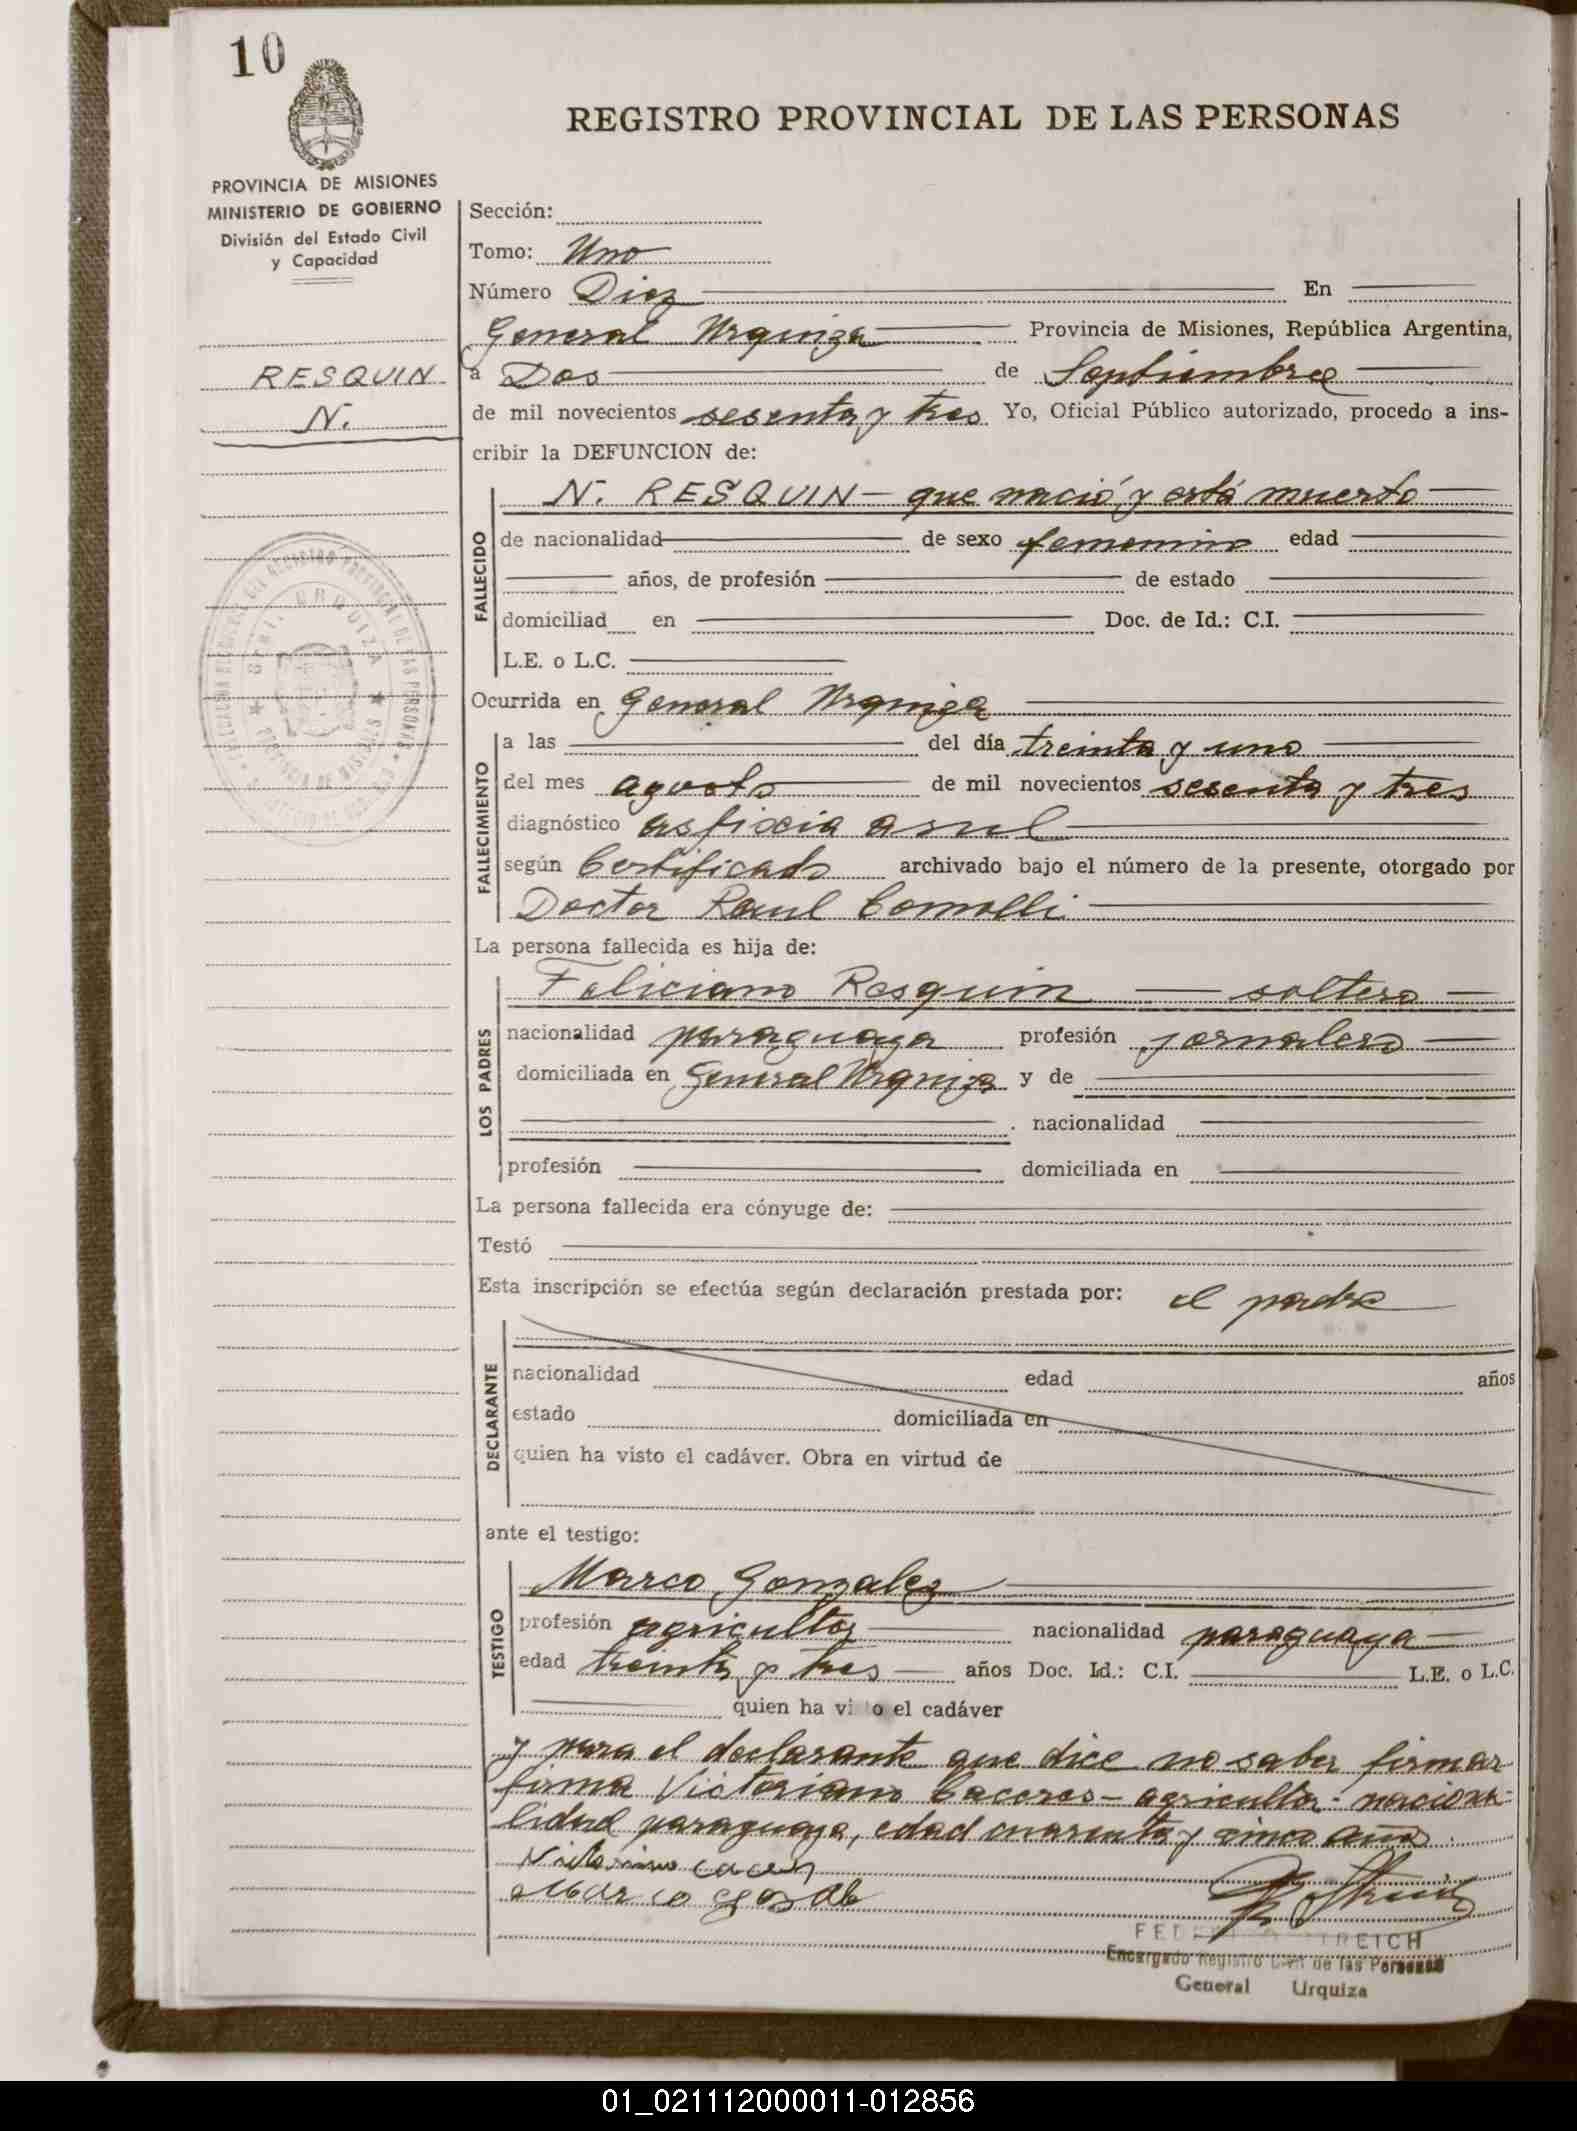 10
REGISTRO PROVINCIAL DE LAS PERSONAS
PROVINCIA DE MISIONES
MINISTERIO DE GOBIERNO
División del Estado Civil
y Capacidad
RESQUIN
N.
Sección:
Tomo: Uno
Número Diez En
General Urquiza Provincia de Misiones, República Argentina,
a Dos de Septiembre
de mil novecientos sesenta y tres Yo, Oficial Público autorizado, procedo a ins-
cribir la DEFUNCION de:
N. RESQUIN — que nació y está muerto
FALLECIDO
de nacionalidad de sexo femenino edad
años, de profesión de estado
domiciliad en Doc. de Id.: C.I.
L.E. o L.C.
Ocurrida en General Urquiza
FALLECIMIENTO
a las del día treinta y uno
del mes agosto de mil novecientos sesenta y tres
diagnóstico asfixia asul
según Certificado archivado bajo el número de la presente, otorgado por
Doctor Raul Comolli
La persona fallecida es hija de:
LOS PADRES
Feliciano Resquin — soltero
nacionalidad paraguaya profesión jornalero
domiciliada en General Urquiza y de
nacionalidad
profesión domiciliada en
La persona fallecida era cónyuge de:
Testó
Esta inscripción se efectúa según declaración prestada por: el padre
DECLARANTE
nacionalidad edad años
estado domiciliada en
quien ha visto el cadáver. Obra en virtud de
ante el testigo:
TESTIGO
Marco Gonzalez
profesión agricultor nacionalidad paraguaya
edad treinta y tres años Doc. Id.: C.I. L.E. o L.C.
quien ha visto el cadáver
y para el declarante que dice no saber firmar
firma Victoriano Caceres - agricultor - naciona-
lidad paraguaya, edad cuarenta y cinco años
REICH
Encargado Registro Civil de las Personas
General Urquiza
01_021112000011-012856